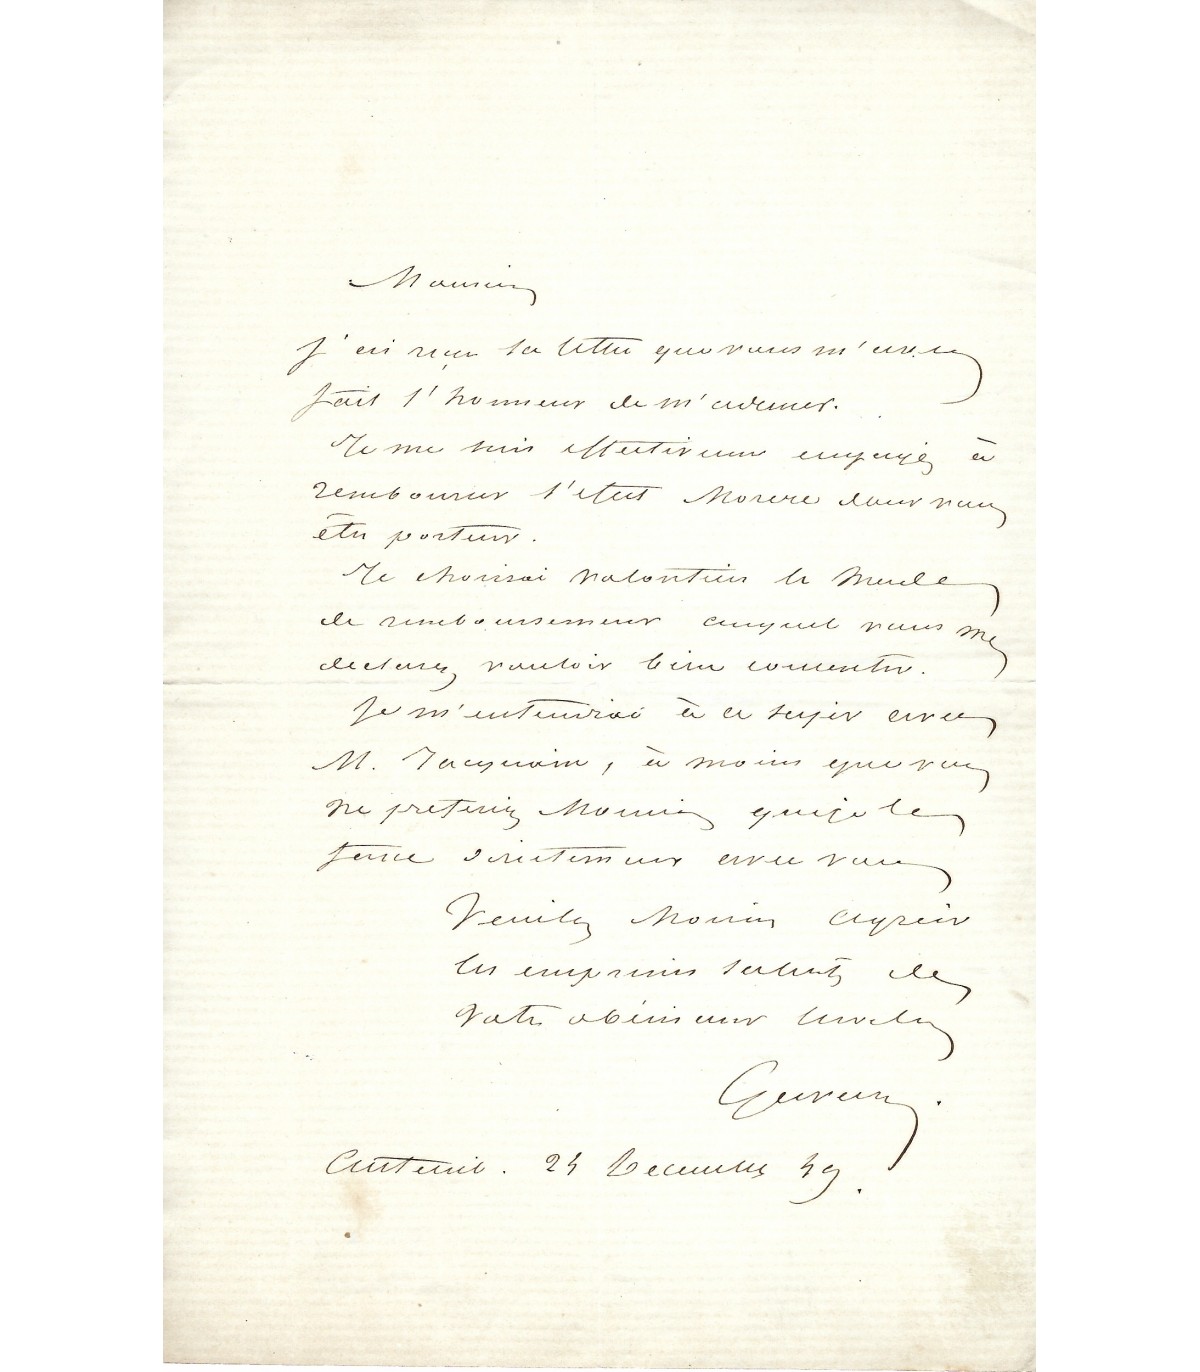 Monsieur
J'ai reçu la lettre que vous m'avez
fait l'honneur de m'adresser.
Je me suis effectivement engagé à
rembourser l'effet Morere dont vous
êtes porteur.
Je choisirai volontiers le mode
de remboursement auquel vous me
declarez vouloir bien consentir.
Je m'entendrai à ce sujet avec
M. Jacquain, à moins que vous
ne preferiez Monsieur que je le
fasse directement avec vous
Veuillez Monsieur agréer
les empressés saluts de
Votre obéissant serviteur
Gavarni.
Auteuil. 24 Decembre 49.